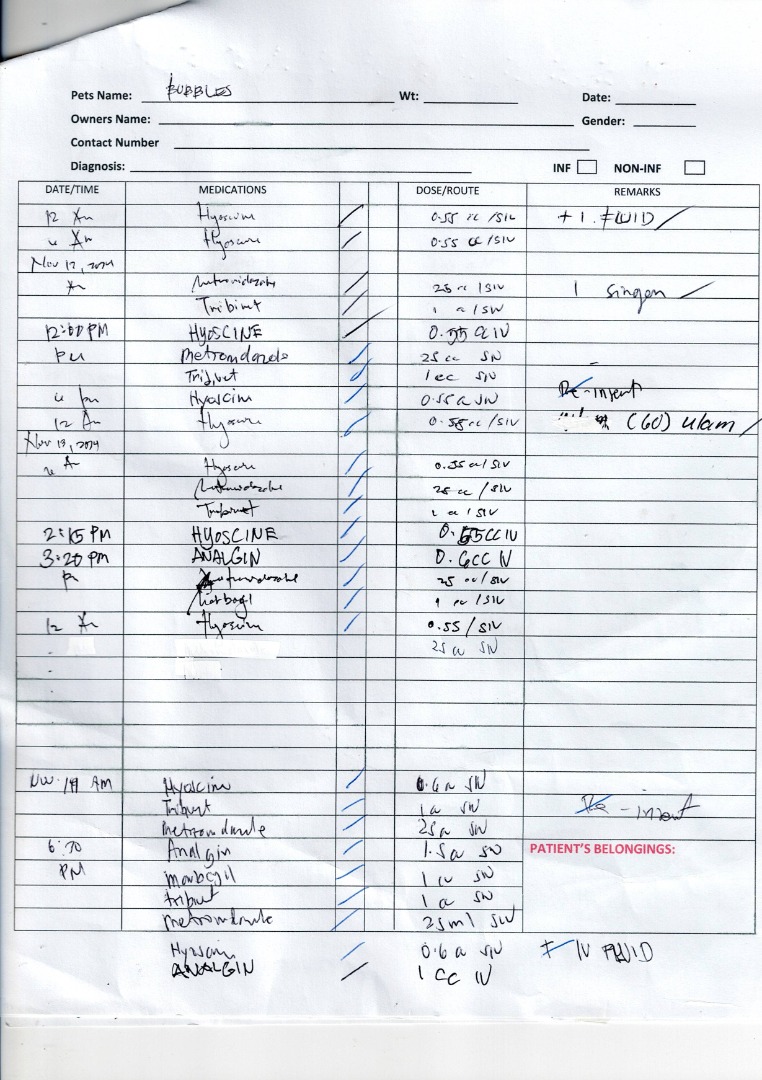 Pets Name: BUBBLES Wt: Date:
Owners Name: Gender:
Contact Number
Diagnosis: INF NON-INF
DATE/TIME MEDICATIONS DOSE/ROUTE REMARKS
12 Hyoscine 0.55 cc /SIV + 1. FLUID
Hyoscine 0.55 cc /SIV
Nov 12, 2024
Metronidazole 25 cc /SIV 1 syngen
Tribivet 1 cc /SIV
12:00 PM HYOSCINE 0.55 CC IV
PM Metronidazole 25 cc SIV
Tribivet 1 cc SIV
pm Hyoscine 0.55 cc SIV Re-insert
12 Hyoscine 0.55 cc /SIV (60) ulam
Nov 13, 2024
Hyoscine 0.55 cc/ SIV
Metronidazole 25 cc / SIV
Tribivet 1 cc / SIV
2:15 PM HYOSCINE 0.55CC IV
3:20 PM ANALGIN 0.6CC IV
Metronidazole 25 cc/SIV
1 cc /SIV
12 Hyoscine 0.55 / SIV
25 cc SIV
Nov. 14 AM Hyoscine 0.6 cc SIV
Tribivet 1 cc SIV Re-insert
metronidazole 25 cc SIV
Analgin 1.5 cc SIV PATIENT'S BELONGINGS:
PM 1 cc SIV
tribivet 1 cc SIV
metronidazole 25ml SIV
Hyoscine 0.6 cc SIV IV FLUID
ANALGIN 1 CC IV